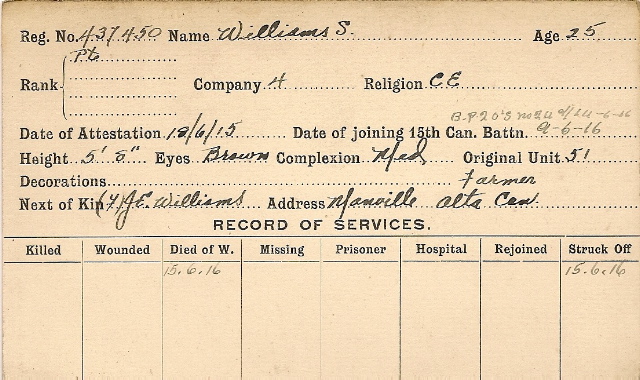 Reg. No. 437450 Name Williams S. Age 25
Rank Pte Company 4 Religion CE
B.P20's No 24 d/14-6-16
Date of Attestation 12/6/15 Date of joining 15th Can. Battn. 9-6-16
Height 5' 8" Eyes Brown Complexion Med Original Unit 51
Decorations Farmer
Next of Kin (F) J.E. Williams Address Manville Alta Can.
RECORD OF SERVICES.
Killed Wounded Died of W. Missing Prisoner Hospital Rejoined Struck Off
15.6.16 15.6.16